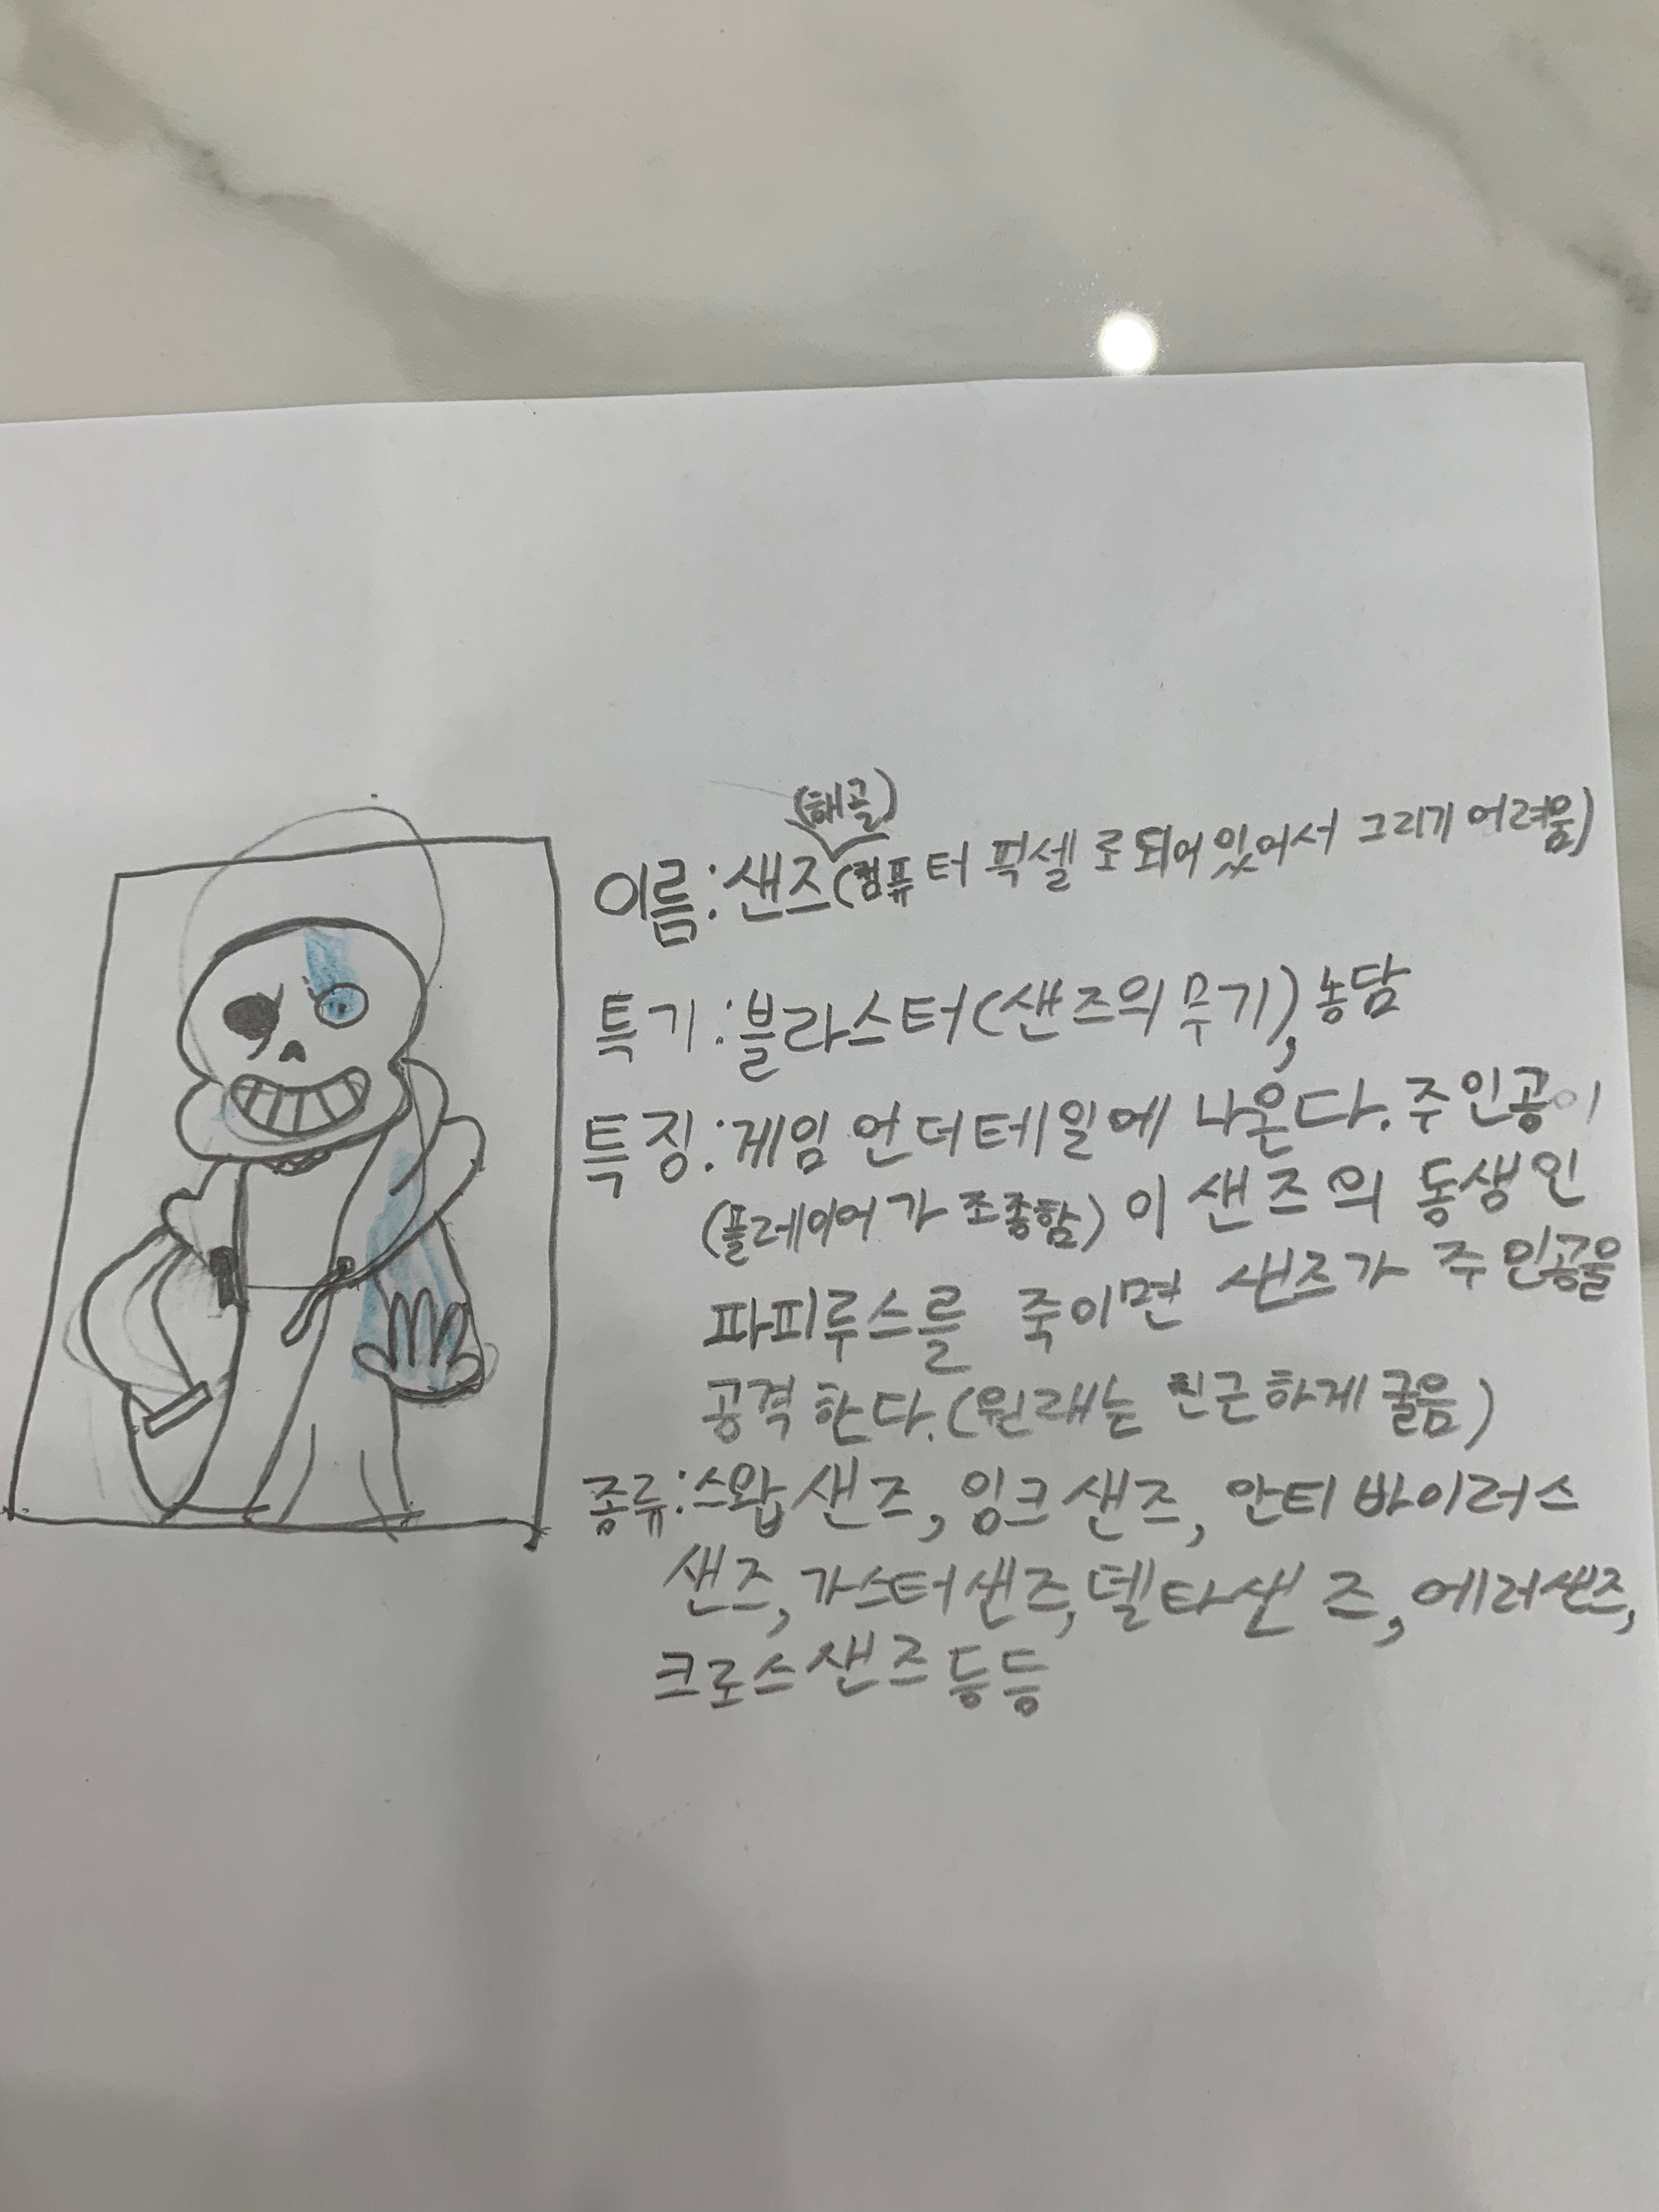 (해골)
이름:샌즈(컴퓨터 픽셀로 되어있어서 그리기 어려움)
특기:블라스터(샌즈의 무기), 농담
특징:게임 언더테일에 나온다. 주인공이
(플레이어가 조종함) 이 샌즈의 동생인
파피루스를 죽이면 샌즈가 주인공을
공격한다.(원래는 친근하게 굴음)
종류:스왑샌즈, 잉크샌즈, 안티바이러스
샌즈, 가스터샌즈, 델타샌즈, 에러샌즈,
크로스샌즈 등등